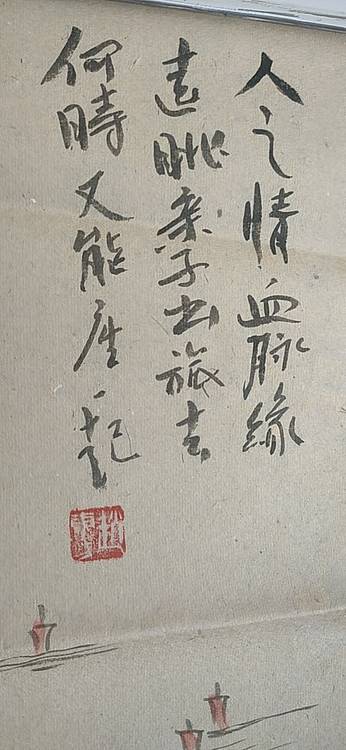 人之情血脉緣
遠眺亲子出旅去
何時又能座一起